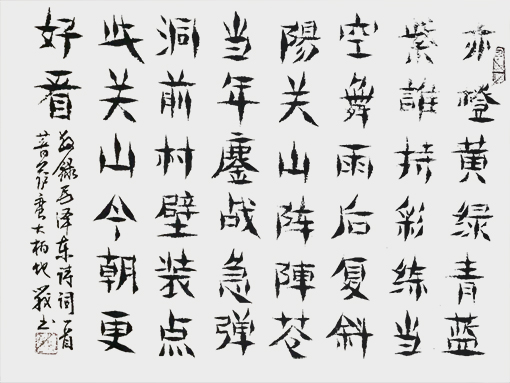 赤橙黄绿青蓝
紫誰持彩练当
空舞雨后复斜
陽关山阵陣苍
当年鏖战急弹
洞前村壁装点
此关山今朝更
好看
敬录毛泽东诗词一首
菩萨蛮大柏地 书